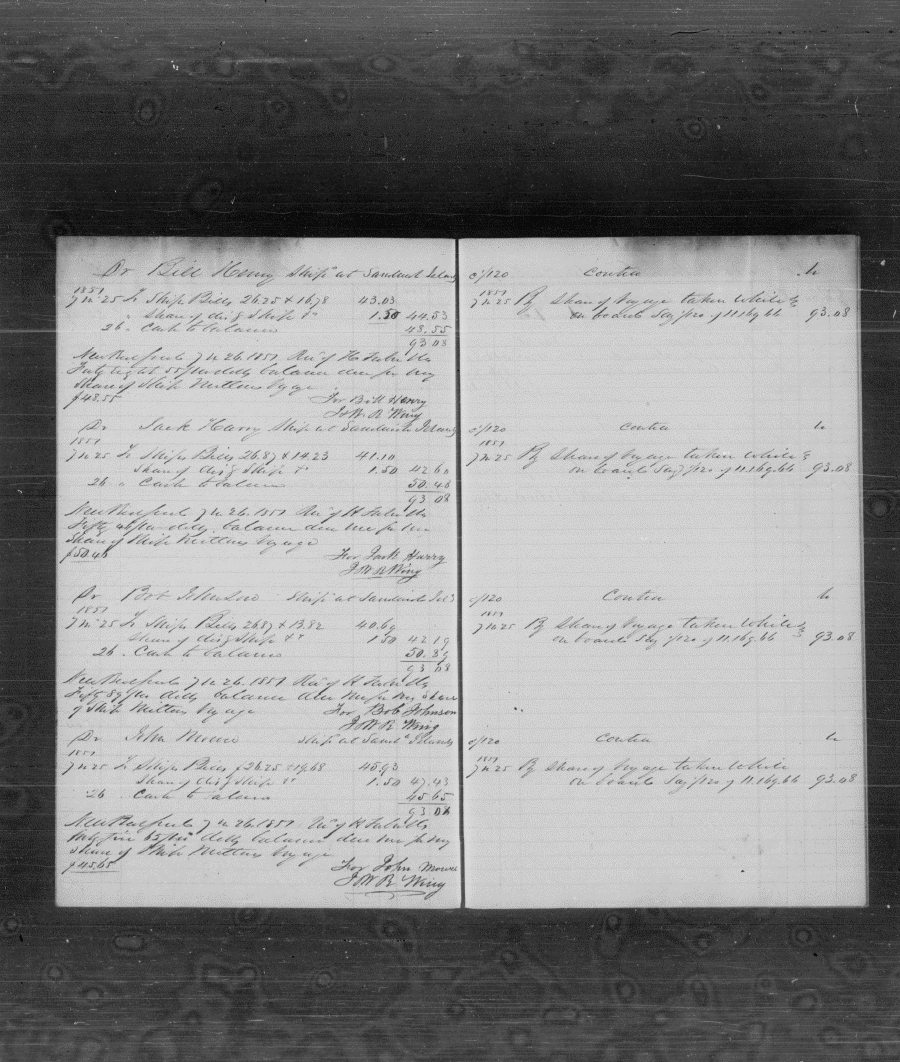 Dr Bill Henry Ship at Sandwich Islands
1851
7 m 25 To Ship Bills 26.25 & 16.78 43.03
" Share of dis'g Ship &c 1.50 44.53
26 " Cash to balance 48.55
93.08
New Bedford 7 m 26. 1851 Rec'd of
Forty eight 55/100 dolls balance due for my
Share of Ship voyage
$48.55 For Bill Henry
J W R Wing
Dr Jack Harry Ship at Sandwich Islands
1851
7 m 25 To Ships Bills 26.87 & 14.23 41.10
Share of dis'g Ship &c 1.50 42.60
26 " Cash to balance 50.48
93 08
New Bedford 7 m 26. 1851 Rec'd of
Fifty 48/100 dolls. balance due me for my
Share of Ship voyage
$50.48 For Jack Harry
J W R Wing
Dr Bob Johnson Ship at Sandwich Isl's
1851
7 m 25 To Ships Bills 26.87 & 13.82 40.69
Share of dis'g Ship &c 1.50 42.19
26 " Cash to balance 50.89
93 08
New Bedford 7 m 26. 1851 Rec'd of
Fifty 89/100 dolls balance due me for my Share
of Ship voyage For Bob Johnson
J W R Wing
Dr John Mowee Ship at Sand'h Islands
1851
7 m 25 To Ships Bills 26.25 & 19.68 45.93
Share of dis'g Ship &c 1.50 47.43
26 " Cash to balance 45.65
93.08
New Bedford 7 m 26. 1851 Rec'd of
Forty five 65/100 dolls balance due me for my
Share of Ship voyage
$45.65 For John Mowee
J W R Wing
c/120 Contra
1851
7 m 25 By Share of Voyage taken while
on board Say 1/120 of 11.169.66 93.08
c/120 Contra
1851
7 m 25 By Share of Voyage taken while
on board Say 1/120 of 11.169.66 93.08
c/120 Contra
1851
7 m 25 By Share of Voyage taken while
on board Say 1/120 of 11.169.66 93.08
c/120 Contra
1851
7 m 25 By Share of Voyage taken while
on board Say 1/120 of 11.169.66 93.08